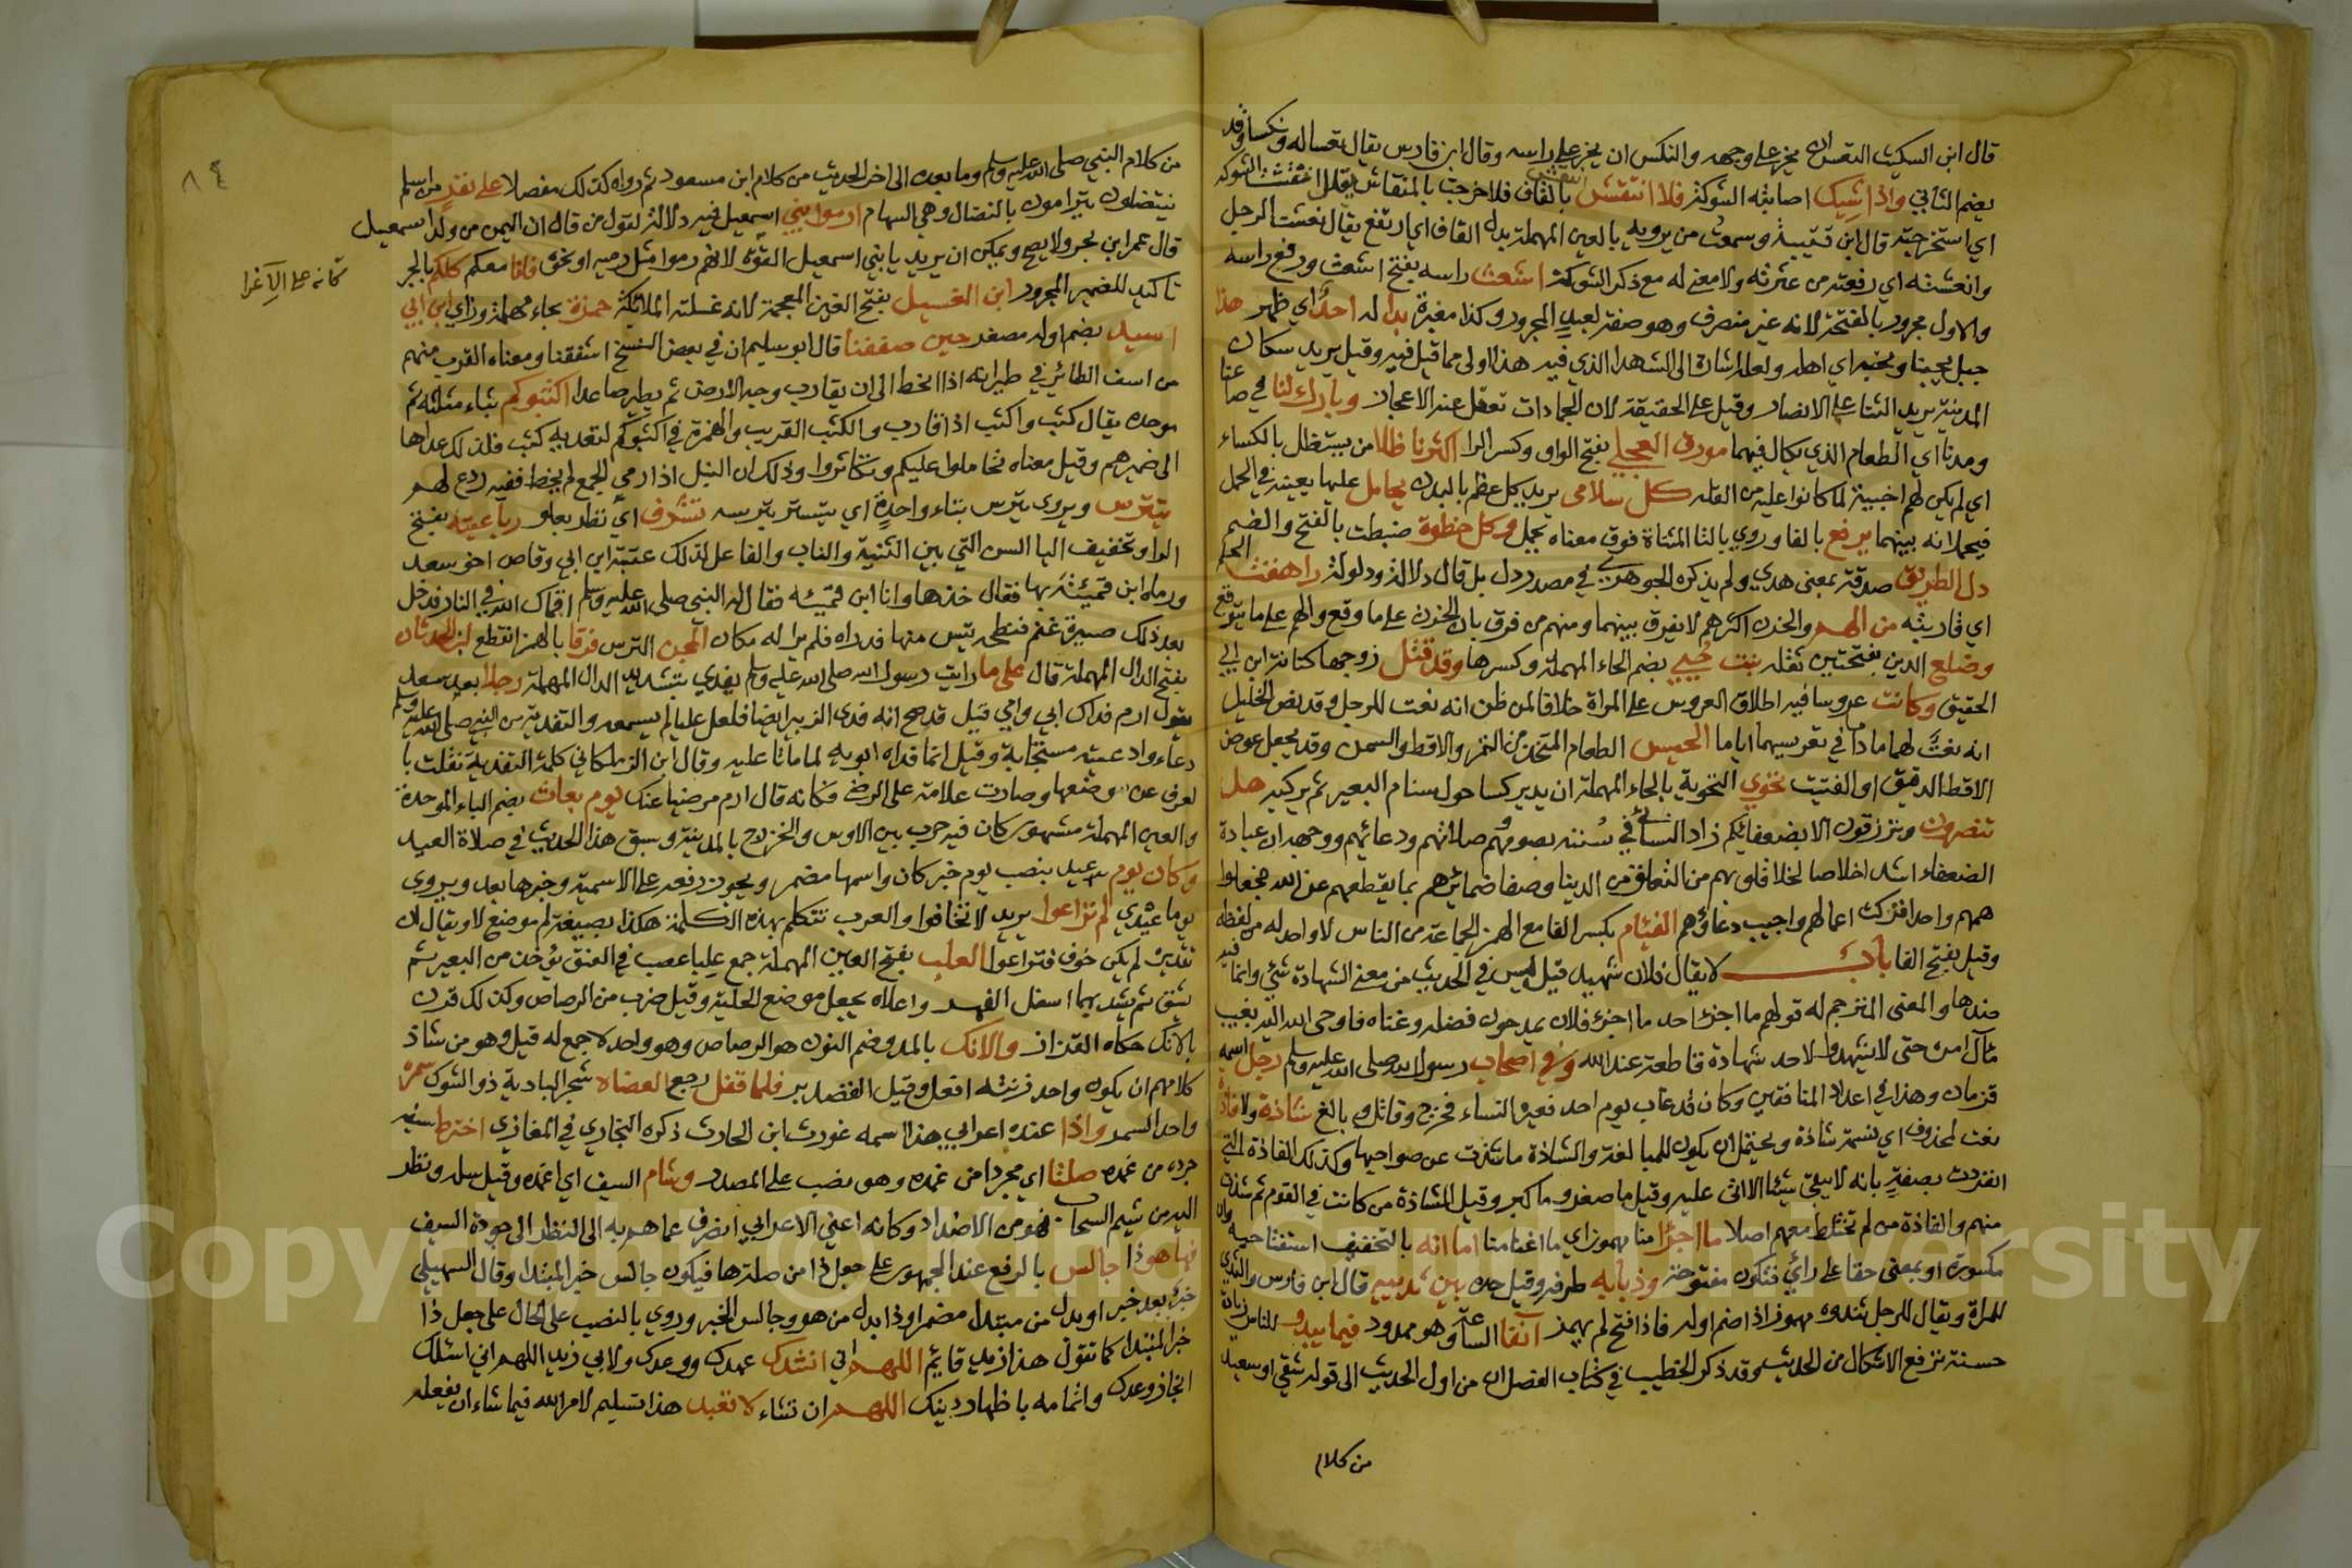 قال ابن السكيت التعس ان يخر على وجهه والنكس ان يخر على راسه وقال ابن فارس يقال تعسا له ونكسا وقد
بضم الثاني واذا شيك اصابته الشوكة فلا انتقش بالقاف فلا خرجت بالمنقاش يقال انتقشت الشوكة
اي استخرجته قال ابن قتيبة وسمعت من يرويه بالعين المهملة بدل القاف اي ارتفع يقال نعشت الرجل
وانعشته اي رفعته من عثرته ولا معنى له مع ذكر الشوكة اشعث راسه بفتح اشعث ورفع راسه
والاول مجرور بالفتحة لانه غير منصرف وهو صفة لعبد المجرور وكذا مغبرة بدا له احد اي ظهر هذا
جبل يحبنا ونحبه اي اهله ولعله اشارة الى الشهدا الذي فيه هذا اولى مما قيل فيه وقيل يريد سكان
المدينة يريد الثنا على الانصار وقيل على الحقيقة لان الجمادات تعقل عند الاعجاز وبارك لنا في صاعنا
ومدنا اي الطعام الذي يكال فيهما مورق العجلي بفتح الواو وكسر الرا اكثرنا ظلا من يستظل بالكساء
اي لم يكن لهم اخبية لما كانوا عليه من القلة كل سلامى يريد كل عظم بالبدن يحامل عليها يعينه في الحمل
فيحملانه بينهما يرفع بالفا وروي بالتا المثناة فوق معناه يحمل وكل خطوة ضبطت بالفتح والضم
دل الطريق صدقة بمعنى هدي ولم يذكره الجوهري في مصدر دل بل قال دلالة ودلولة راهقت الحلم
اي قاربته من الهم والحزن اكثرهم لا يفرق بينهما ومنهم من فرق بان الحزن على ما وقع والهم على ما يتوقع
وضلع الدين بفتحتين ثقله بنت حيي بضم الحاء المهملة وكسرها وقد قتل زوجها كنانة ابن ابي
الحقيق وكانت عروسا فيه اطلاق العروس على المراة خلافا لمن ظن انه نعت للرجل وقد نص الخليل
انه نعت لهما ما داما في تعريسهما اياما الحيس الطعام المتخذ من التمر والاقط والسمن وقد يجعل عوض
الاقط الدقيق او الفتيت تحوي التحوية بالحاء المهملة ان يدير كسا حول سنام البعير ثم يركبه هل
تنصرون وترزقون الا بضعفائكم زاد النسائي في سننه بصومهم وصلاتهم ودعائهم ووجهه ان عبادة
الضعفاء اشد اخلاصا لخلا قلوبهم من التعلق من الدنيا وصفا ضمائرهم بما يقطعهم عن الله فجعلوا
همهم واحدا فزكت اعمالهم واجيب دعاؤهم الفئام بكسر الفا مع الهمز الجماعة من الناس لا واحد له من لفظه
وقيل بفتح الفا باب لا يقال فلان شهيد قيل ليس في الحديث من معنى الشهادة شئ وانما فيه
ضدها والمعنى المترجم له قولهم ما اجزا احد ما اجزا فلان يمدحون فضله وغناه فاوحى الله اليه بغيب
مآل امره حتى لا يشهدوا لاحد شهادة قاطعة عند الله وفي اصحاب رسول الله صلى الله عليه وسلم رجل اسمه
قزمان وهذا في اعداد المنافقين وكان قد غاب يوم احد فعيره النساء فخرج وقاتل وبالغ شاذة ولا فاذة
نعت لمحذوف اي نسمة شاذة ويحتمل ان يكون للمبالغة والشاذة ما شذت عن صواحبها وكذلك الفاذة التي
انفردت يصفه بانه لا يبقي شيئا الا اتى عليه وقيل ما صغر وما كبر وقيل الشاذة من كانت في القوم ثم شذت
منهم والفاذة من لم تختلط معهم اصلا ما اجزا منا مهموز اي ما اغنا منا اما انه بالتخفيف استفتاحية وان
مكسورة او بمعنى حقا على راي فتكون مفتوحة وذبابه طرفه وقيل حده بين ثدييه قال ابن فارس والثدي
للمراة ويقال للرجل ثندوه مهموز اذا ضم اوله فاذا فتح لم يهمز آنفا الساعة وهو ممدود فيما يبدو للناس زيادة
حسنة ترفع الاشكال من الحديث وقد ذكر الخطيب في كتاب الفصل ان من اول الحديث الى قوله شقي او سعيد
من كلام
٨٤
من كلام النبي صلى الله عليه وسلم وما بعده الى اخر الحديث من كلام ابن مسعود ثم رواه كذلك مفصلا على نفر من اسلم
ينتضلون يترامون بالنضال وهي السهام ارموا بني اسمعيل فيه دلالة لقول من قال ان اليمن من ولد اسمعيل
قال عمر ابن بحر ولا يصح ويمكن ان يريد يا بني اسمعيل القوة لانهم رموا مثل رميه او نحوه فانا معكم كلكم بالجر
كانه على الاغرا
تاكيد للضمير المجرور ابن الغسيل بفتح الغين المعجمة لانه غسلته الملائكة حمزة بحاء مهملة وزاي ابن ابي
اسيد بضم اوله مصغر حين صففنا قال ابو سليمان في بعض النسخ اسففنا ومعناه القرب منهم
من اسف الطائر في طيرانه اذا انحط الى ان يقارب وجه الارض ثم يطير صاعدا اكثبوكم بثاء مثلثة ثم
موحدة يقال كثب واكثب اذا قارب والكثب القريب والهمزة في اكثبوكم لتعدية كثب فلذلك عداها
الى ضميرهم وقيل معناه تحاملوا عليكم وتكاثروا وذلك ان النبل اذا رمي الجمع لم يخط ففيه ردع لهم
يتترس ويروى يترس بتاء واحدة اي يتستر بترسه تشرف اي نظر بعلو رباعيته بفتح
الرا وتخفيف اليا السن التي بين الثنية والناب والفاعل لذلك عتبة ابن ابي وقاص اخو سعد
ورماه ابن قميئة بها فقال خذها وانا ابن قميئه فقال له النبي صلى الله عليه وسلم اقماك الله في النار فدخل
بعد ذلك صبرة غنم فنطحه تيس منها فدراه فلم ير له مكان المجن الترس فرقا بالهمز انقطع ابن الحدثان
بفتح الدال المهملة قال على ما رايت رسول الله صلى الله عليه وسلم يفدي بتشديد الدال المهملة رجلا بعد سعد
يقول ارم فداك ابي وامي قيل قد صح انه فدى الزبير ايضا فلعل عليا لم يسمعه والتفدية من النبي صلى الله عليه وسلم
دعاء وادعيته مستجابة وقيل انما فداه ابويه لما ماتا عليه وقال ابن الزملكاني كلمة التفدية نقلت با
لعرف عن وضعها وصارت علامة على الرضى فكانه قال ارم مرضيا عنك يوم بعاث بضم الباء الموحدة
والعين المهملة مشهور كان فيه حرب بين الاوس والخزرج بالمدينة وسبق هذا الحديث في صلاة العيد
وكان يوم عيد بنصب يوم خبر كان واسمها مضمر ويجوز رفعه على الاسمية وخبرها بعد ويروى
يوما عندي لم تراعوا يريد لا تخافوا والعرب تتكلم بهذه الكلمة هكذا بصيغة لم موضع لا ويقال ان
تقديره لم يكن خوف فتراعوا العلب بفتح العين المهملة جمع عليا عصب في العنق يؤخذ من البعير ثم
يشق ثم يشد بهما اسفل الغمد واعلاه يجعل موضع الحلية وقيل ضرب من الرصاص وكذلك قرن
بالآنك حكاه القزاز والآنك بالمد وضم النون هو الرصاص وهو واحد لا جمع له قيل وهو من شاذ
كلامهم ان يكون واحد زنته افعل وقيل القصدير فلما قفل رجع العضاه شجر البادية ذو الشوك سمرة
واحد السمر واذا عنده اعرابي هذا اسمه غورث ابن الحارث ذكره البخاري في المغازي اخترط سيفه
جرده من غمده صلتا اي مجردا من غمده وهو نصب على المصدر وشام السيف اي اغمده وقيل سله ونظر
اليه من شيم السحاب فهو من الاضداد وكانه اعني الاعرابي انصرف عما هم به الى النظر الى جودة السيف
فها هو ذا جالس بالرفع عند الجمهور على جعل ذا من صلة ها فيكون جالس خبر المبتدا وقال السهيلي
خبر بعد خبر او بدل من مبتدا مضمر او ذا بدل من هو وجالس الخبر وروي بالنصب على الحال على جعل ذا
خبر المبتدا كما تقول هذا زيد قايم اللهم اني انشدك عهدك ووعدك ولابي زيد اللهم اني اسئلك
انجاز وعدك واتمامه باظهار دينك اللهم ان تشاء لا تعبد هذا تسليم لامر الله فيما شاء ان يفعله
Copyright © King Saud University